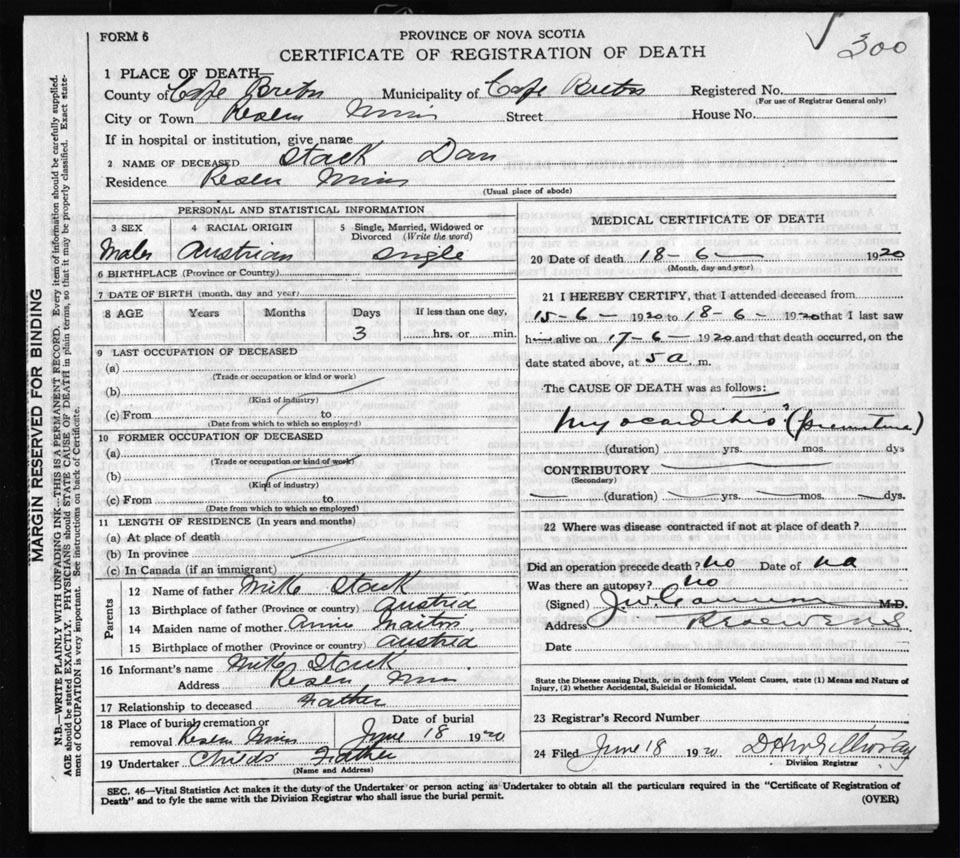 FORM 6
PROVINCE OF NOVA SCOTIA
300
CERTIFICATE OF REGISTRATION OF DEATH
1 PLACE OF DEATH—
County of Cape Breton Municipality of Cape Breton Registered No.
(For use of Registrar General only)
City or Town Reserve Mines Street House No.
If in hospital or institution, give name
2 NAME OF DECEASED Stack Dan
Residence Reserve Mines
(Usual place of abode)
PERSONAL AND STATISTICAL INFORMATION
3 SEX 4 RACIAL ORIGIN 5 Single, Married, Widowed or Divorced (Write the word)
Male Austrian Single
6 BIRTHPLACE (Province or Country)
7 DATE OF BIRTH (month, day and year)
8 AGE Years Months Days If less than one day,
3 hrs. or min.
9 LAST OCCUPATION OF DECEASED
(a)
(Trade or occupation or kind or work)
(b)
(Kind of industry)
(c) From to
(Date from which to which so employed)
10 FORMER OCCUPATION OF DECEASED
(a)
(Trade or occupation or kind of work)
(b)
(Kind of industry)
(c) From to
(Date from which to which so employed)
11 LENGTH OF RESIDENCE (In years and months)
(a) At place of death
(b) In province
(c) In Canada (if an immigrant)
Parents
12 Name of father Mike Stack
13 Birthplace of father (Province or country) Austria
14 Maiden name of mother Annie
15 Birthplace of mother (Province or country) Austria
16 Informant's name Mike Stack
Address Reserve Mines
17 Relationship to deceased Father
18 Place of burial, cremation or removal Reserve Mines Date of burial June 18 1920
19 Undertaker Childs Father
(Name and Address)
MEDICAL CERTIFICATE OF DEATH
20 Date of death 18 - 6 — 1920
(Month, day and year)
21 I HEREBY CERTIFY, that I attended deceased from
15 - 6 — 1920 to 18 - 6 — 1920 that I last saw
h alive on 17 - 6 — 1920 and that death occurred, on
date stated above, at 5 a. m.
The CAUSE OF DEATH was as follows:
Myocarditis (premature)
(duration) yrs. mos. dys
CONTRIBUTORY
(Secondary)
(duration) yrs. mos. dys.
22 Where was disease contracted if not at place of death?
Did an operation precede death? no Date of na
Was there an autopsy? no
(Signed) J.W. M.D.
Address
Date
State the Disease causing Death, or in death from Violent Causes, state (1) Means and Nature of
Injury, (2) whether Accidental, Suicidal or Homicidal.
23 Registrar's Record Number
24 Filed June 18 1920
Division Registrar
SEC. 46—Vital Statistics Act makes it the duty of the Undertaker or person acting as Undertaker to obtain all the particulars required in the "Certificate of Registration of
Death" and to fyle the same with the Division Registrar who shall issue the burial permit.
(OVER)
MARGIN RESERVED FOR BINDING
N.B.—WRITE PLAINLY WITH UNFADING INK—THIS IS A PERMANENT RECORD. Every item of information should be carefully supplied.
AGE should be stated EXACTLY. PHYSICIANS should STATE CAUSE OF DEATH in plain terms, so that it may be properly classified. Exact statement of OCCUPATION is very important. See instructions on back of Certificate.